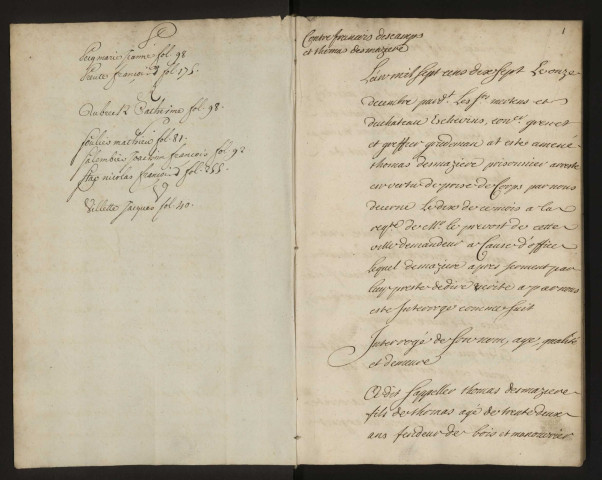 S
Seigmarie Jeanne fol. 98
françois fol. 175.
Dubrul Catherine fol. 98.
mathieu fol. 81.
françois fol. 92
nicolas françois fol. 355.
Villette Jacques fol. 40.
1
Contre francois descamps
et thomas desmaziere
Lan mil sept cens dix sept Le onze
decembre pard.t Les s.rs mertens et
duchateau Eschevins, con.er grenet
et greffier prudhomme at estez amené
thomas desmaziere prisonnier arresté
en vertu de prise de Corps par nous
decerné Le dix de ce mois a la
req.te de M.r le prevost de cette
ville demandeur a Cause d'office
lequel desmaziere apres serment par
luy presté de dire verité a par nous
esté Interrogé comme suit
Interrogé de son nom, age, qualité
et demeure
Et dit s'appeller thomas desmaziere
fils de thomas agé de trente deux
ans fendeur de bois et manouvrier